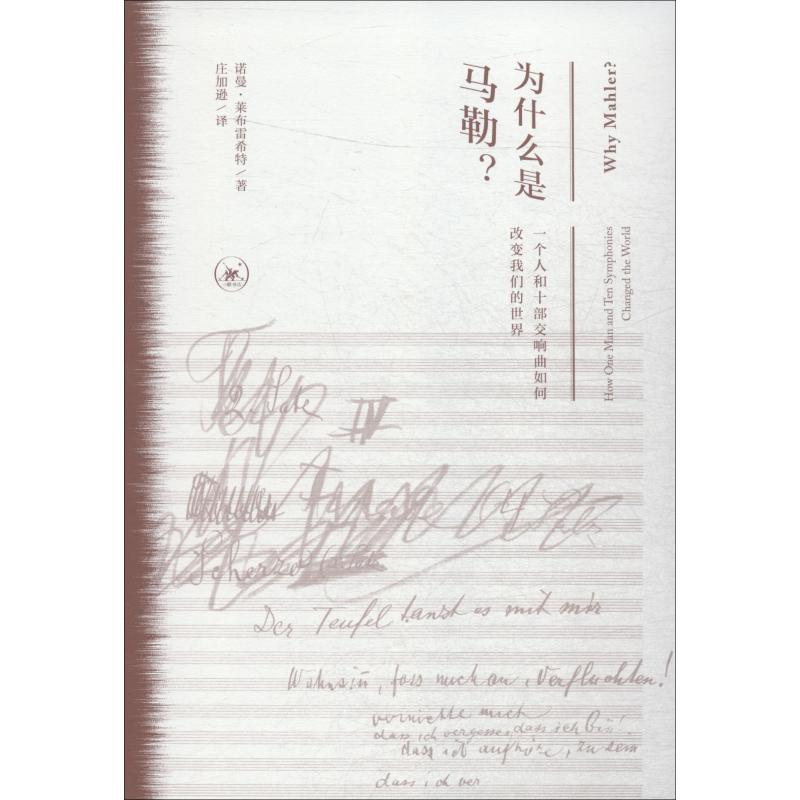 为什么是
马勒？
一个人和十部交响曲如何
改变我们的世界
Why Mahler?
How One Man and Ten Symphonies
Changed the World
诺曼·莱布雷希特/著
庄加逊/译
IV
Scherzo
Der Teufel tanzt es mit mir
Wahnsinn, fass mich an, Verfluchten!
vernichte mich
dass ich vergesse, dass ich bin!
dass ich aufhöre, zu sein
dass ich ver